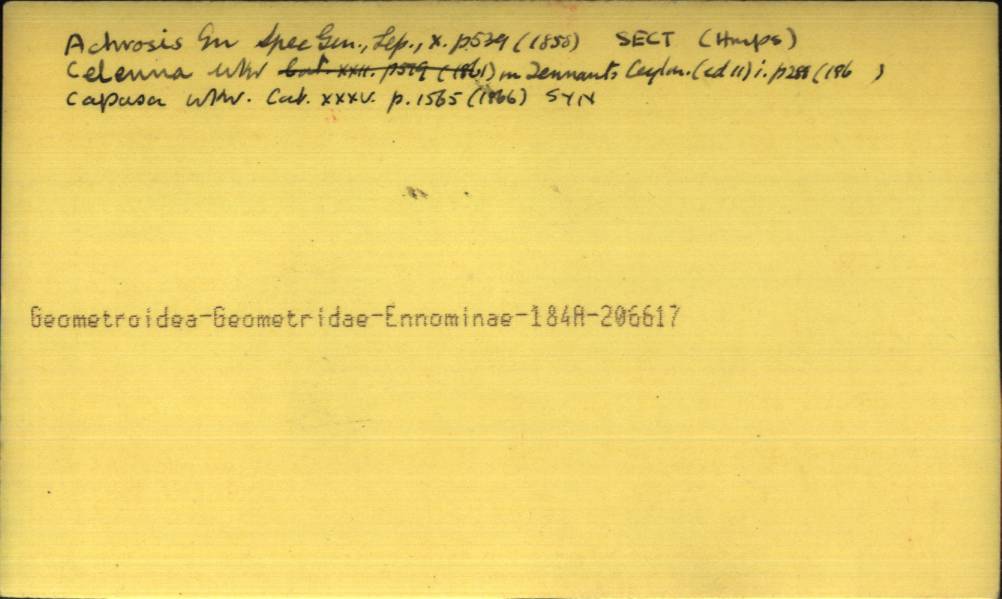 Achrosis Gn Spec Gen., Lep., x. p.539 (1858) SECT (Hmps)
Celenna Wkr Cat. xxii. p.519 (1861) in Tennants Ceylon. (ed 11) i. p288 (186 )
Capasa Wkr. Cat. xxxv. p.1565 (1866) SYN
Geometroidea-Geometridae-Ennominae-184A-206617